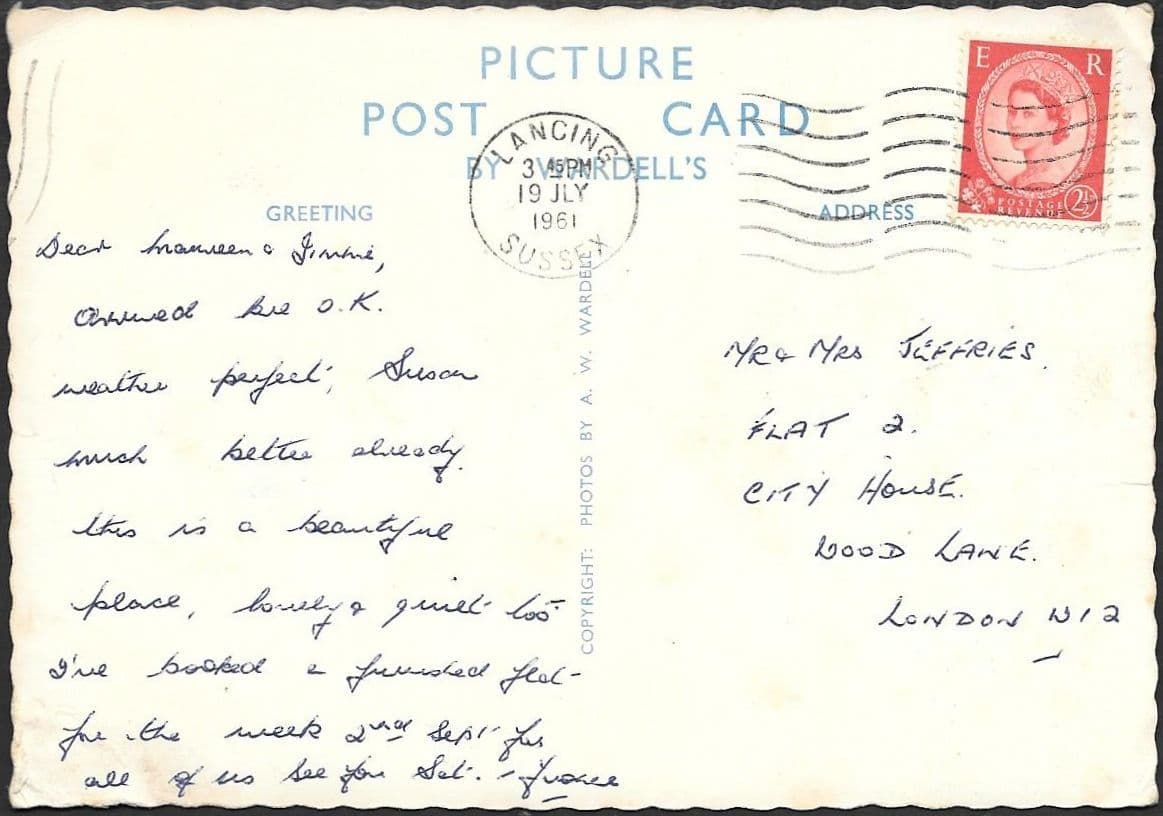 PICTURE
POST CARD
BY WARDELL'S
LANCING
3 45PM
19 JLY
1961
SUSSEX
E R
POSTAGE
REVENUE
2½
GREETING
ADDRESS
Dear Maureen & Jimmie,
Arrived here O.K.
weather perfect, Susan
much better already.
this is a beautiful
place, lovely & quiet too
I've booked a furnished flat
for the week 2nd Sept for
all of us see you Sat. -
COPYRIGHT: PHOTOS BY A. W. WARDELL
MR & MRS JEFFRIES.
FLAT 2.
CITY HOUSE.
WOOD LANE.
LONDON W12